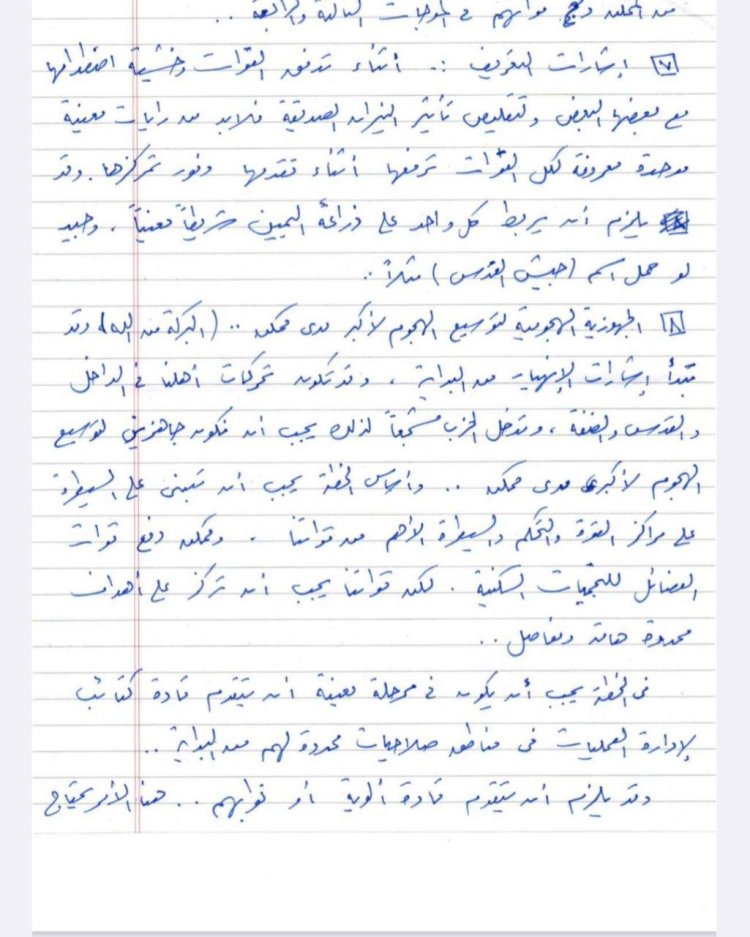 من الممكن دفع قواتهم في الموجات التالية والرابعة ..
٧ إشارات التعريف :. أثناء تدفق القوات وخشية اصطدامها
مع بعضها البعض ولتقليص تأثير النيران الصديقة فلابد من رايات معينة
موحدة معروفة لكل القوات ترفعها أثناء تقدمها وفور تمركزها. وقد
يلزم أن يربط كل واحد على ذراعه اليمين شريطاً معيناً، وحبيد
لو حمل اسم (جيش القدس) مثلاً..
٨ الجهوزية الهجومية لتوسيع الهجوم لأكبر مدى ممكن .. (البركة من الله) وقد
تبدأ إشارات الإنهيار من البداية، وقد تكون تحركات أهلنا في الداخل
والقدس والضفة، وتدخل الحزب مشجعاً لذلك يجب أن نكون جاهزين لتوسيع
الهجوم لأكبر مدى ممكن .. وأساس الخطة يجب أن تبنى على السيطرة
على مراكز القوة والتحكم والسيطرة الأهم من قواتنا . وممكن دفع قوات
الفصائل للتجمعات السكنية . لكن قواتنا يجب أن تركز على أهداف
محددة هامة ومفاصل ..
في الخطة يجب أن يكون في مرحلة معينة أن يتقدم قادة كتائب
لإدارة العمليات في مناطق صلاحيات محددة لهم من البداية ..
وقد يلزم أن يتقدم قادة ألوية أو نوابهم .. هذا الأمر يحتاج